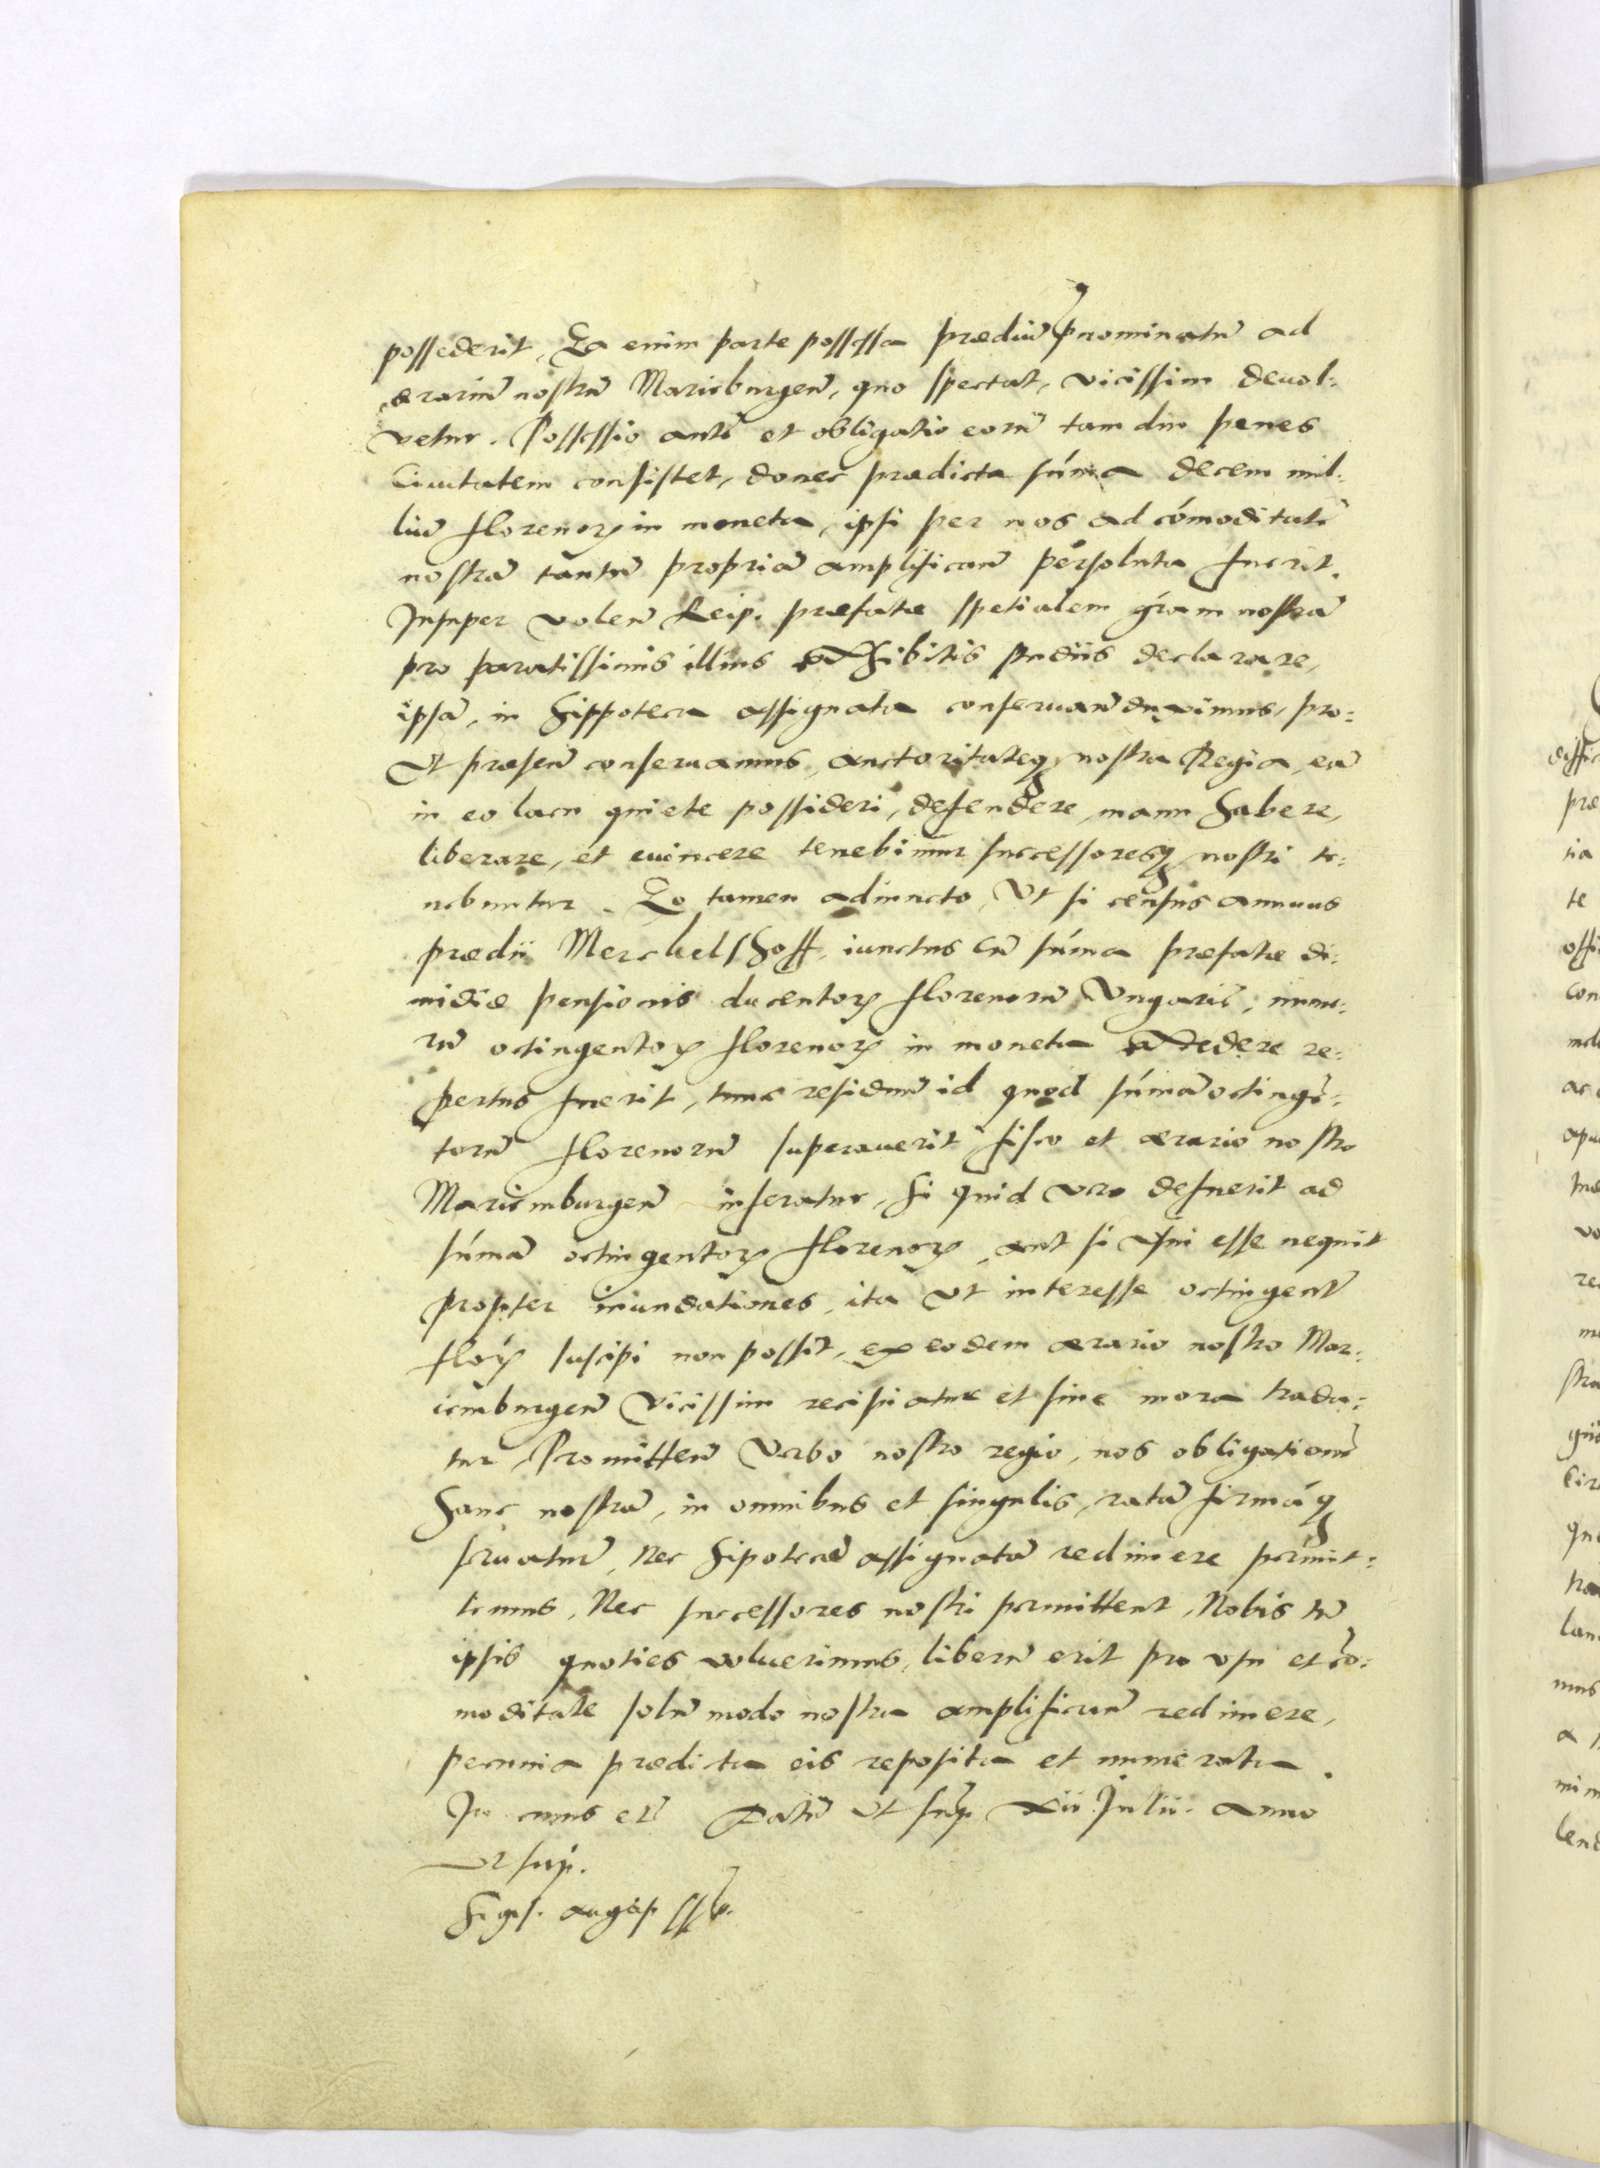 possederit, Ea enim parte possessa prædiũ p̃nominatũ ad
ærariũ nostrũ Marieburgeñ, quo spectat, vicissim deuol:
vetur. Possessio autẽ et obligatio eorũ tam diu penes
Ciuitatem consistet, donec prædicta sum̃a decem mil:
liũ florenoꝝ in moneta, ipsi per nos ad com̃oditatẽ
nostrã tantũ propriã amplificanđ persoluta fuerit.
Insuper volenˀ Reip. præfatæ spetialem gr̃am nostrã
pro paratissimis illius exhibitis studiis declarare,
ipsã, in hippoteca assignata conseruanđ duximus, pro:
Ut præsenˀ conseruamus, auctoritateqꝫ nostra Regia, eã
in eo lacu quiete possideri, defendere, manu habere,
liberare, et euincere tenebimur successoresqꝫ nostri te:
nebuntur. Eo tamen adiuncto, Ut si census annuus
prædii Merckelshoff, iunctus cũ sum̃a præfatæ di:
midiæ pensionis ducentoꝝ florenorũ Vngaric̃, nume:
rũ octingentoꝝ florenoꝝ in moneta excedere re:
pertus fuerit, tunc residuũ id quod sum̃ã octingẽ:
torũ florenorũ superauerit fisco et ærario nostro
Mariemburgeñ inferatur, Si quid vero defuerit ad
sum̃ã octingentoꝝ florenoꝝ, aut si usui esse nequit
propter inundationes, ita Ut interesse octingent̃
floꝝ suscipi non possit, ex eodem ærario nostro Mar:
iemburgeñ Vicissim recipiatur et sine mora trada:
tur, Promittenˀ Verbo nostro regio, nos obligationẽ
hanc nostrã, in omnibus et singulis, ratã firmãqꝫ
seruaturˀ, Nec hipotecã assignatã redimere permit:
temus, Nec successores nostri permittent, Nobis tñ
ipsis quoties voluerimus, liberũ erit pro usu et cõ:
moditate solũ modo nostra amplificanđ redimere,
pecunia prædicta eis reposita et numerata.
In cuius etc̃ Datũ Ut sup̃ xii Julii. anno
Ut sup̃.